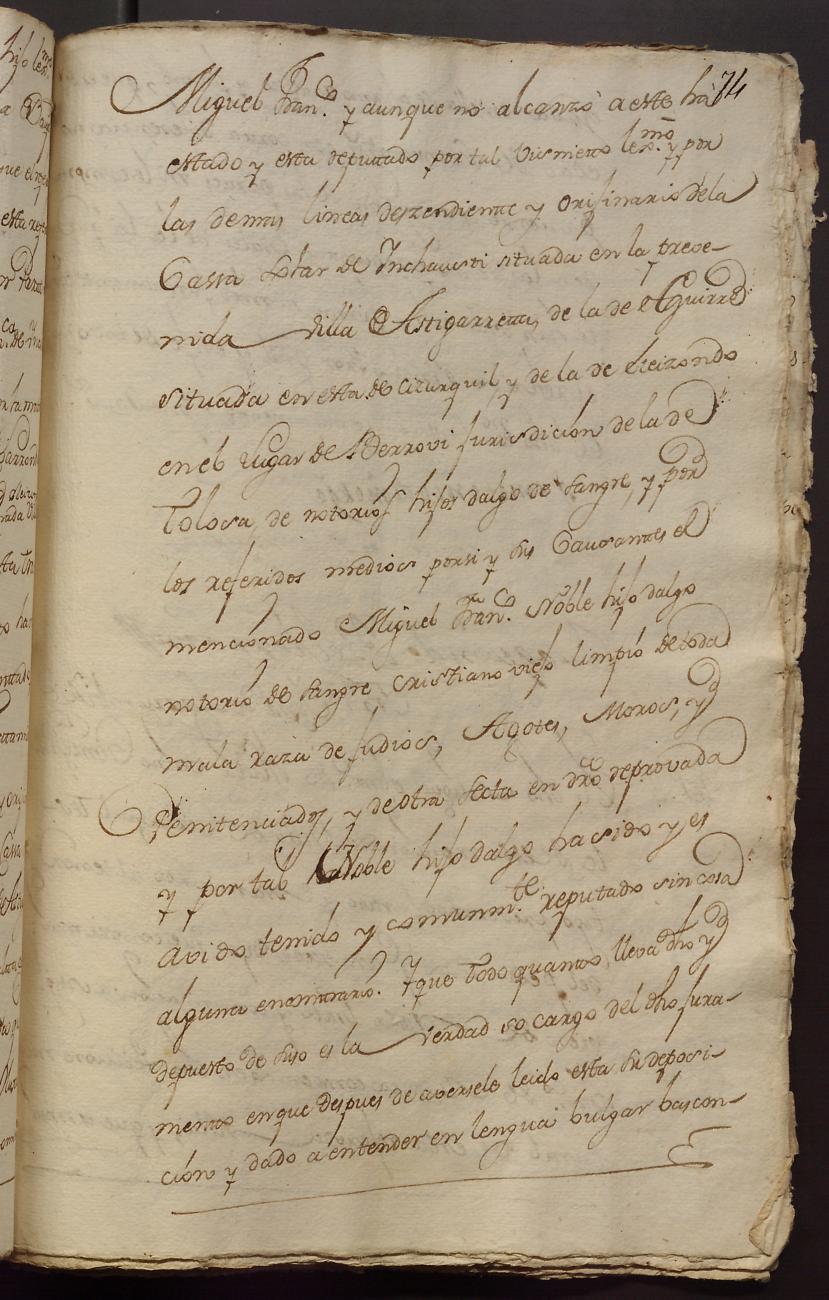 74
Miguel Franco. y aunque no alcanzó a este há
estado y esta deputado por tal Visnieto lexmo. y por
las demas lineas deszendiente y orijinario de la
Cassa solar de Inchausti situada en la preve-
nida Villa de Astigarreta, de la de Aguirre
situada en esta de Cizurquil y de la de Leizondo
en el lugar de Berrovi jurisdición de la de
Tolosa, de notorios hijos dalgo de sangre, y por
los referidos medios por si y sus Causantes el
mencionado Miguel Franco. Noble hijo dalgo
notorio de sangre cristiano viejo limpió de toda
mala raza de judios, Agotes, Moros, y
Penitenciados, y de otra secta en dro reprovada
y por tal Noble hijo dalgo ha sido y es
avido tenido y comunmte. reputado sin cosa
alguna en contrario. Y que todo quanto lleva dho y
depuesto de suso es la verdad so cargo del dho jura-
mento en que despues de aversele leido esta su deposi-
ción y dado a entender en lengua bulgar bascon-